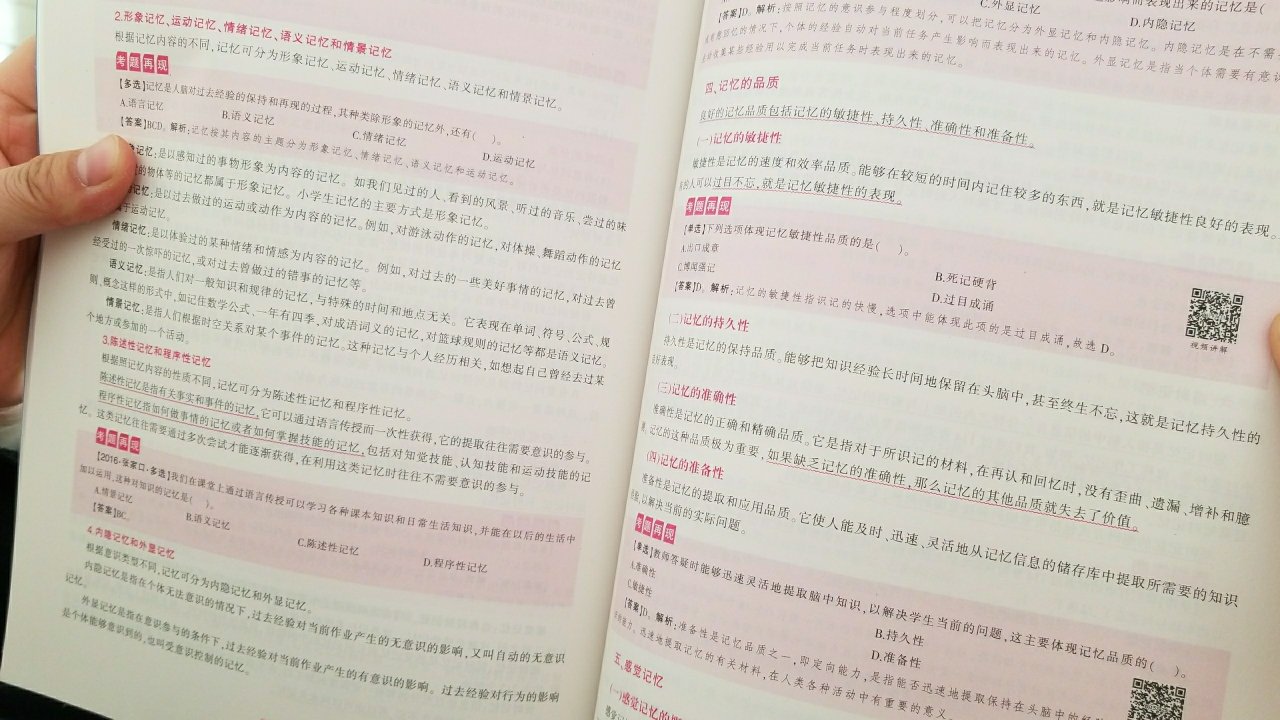 2.形象记忆、运动记忆、情绪记忆、语义记忆和情景记忆
根据记忆内容的不同,记忆可分为形象记忆、运动记忆、情绪记忆、语义记忆和情景记忆。
考题再现
【多选】记忆是人脑对过去经验的保持和再现的过程,其种类除形象的记忆外,还有( )。
A.语言记忆 B.语义记忆 C.情绪记忆 D.运动记忆
【答案】BCD。解析:记忆按其内容的主题分为形象记忆、情绪记忆、语义记忆和运动记忆。
记忆:是以感知过的事物形象为内容的记忆。如我们见过的人、看到的风景、听过的音乐、尝过的味
的物体等的记忆都属于形象记忆。小学生记忆的主要方式是形象记忆。
记忆:是以过去做过的运动或动作为内容的记忆。例如,对游泳动作的记忆,对体操、舞蹈动作的记忆
于运动记忆。
情绪记忆:是以体验过的某种情绪和情感为内容的记忆。例如,对过去的一些美好事情的记忆,对过去曾
经受过的一次惊吓的记忆,或对过去曾做过的错事的记忆等。
语义记忆:是指人们对一般知识和规律的记忆,与特殊的时间和地点无关。它表现在单词、符号、公式、规
则、概念这样的形式中,如记住数学公式,一年有四季,对成语词义的记忆,对篮球规则的记忆等都是语义记忆。
情景记忆:是指人们根据时空关系对某个事件的记忆。这种记忆与个人经历相关,如想起自己曾经去过某
个地方或参加的一个活动。
3.陈述性记忆和程序性记忆
根据照记忆内容的性质不同,记忆可分为陈述性记忆和程序性记忆。
陈述性记忆是指有关事实和事件的记忆,它可以通过语言传授而一次性获得,它的提取往往需要意识的参与。
程序性记忆指如何做事情的记忆或者如何掌握技能的记忆,包括对知觉技能、认知技能和运动技能的记
忆。这类记忆往往需要通过多次尝试才能逐渐获得,在利用这类记忆时往往不需要意识的参与。
考题再现
【2016·张家口·多选】我们在课堂上通过语言传授可以学习各种课本知识和日常生活知识,并能在以后的生活中
加以运用,这种对知识的记忆是( )。
A.情景记忆 B.语义记忆 C.陈述性记忆 D.程序性记忆
【答案】BC。
4.内隐记忆和外显记忆
根据意识类型不同,记忆可分为内隐记忆和外显记忆。
内隐记忆是指在个体无法意识的情况下,过去经验对当前作业产生的无意识的影响,又叫自动的无意识
记忆。
外显记忆是指在意识参与的条件下,过去经验对当前作业产生的有意识的影响。过去经验对行为的影响
是个体能够意识到的,也叫受意识控制的记忆。
影响而表现出来的记忆是(
C.外显记忆 D.内隐记忆
【答案】D。解析:按照记忆的意识参与程度划分,可以把记忆分为外显记忆和内隐记忆。内隐记忆是在不需
的情况下,个体的经验自动对当前任务产生影响而表现出来的记忆。外显记忆是指当个体需要有意
收集某些经验用以完成当前任务时表现出来的记忆。
四、记忆的品质
良好的记忆品质包括记忆的敏捷性、持久性、准确性和准备性。
(一)记忆的敏捷性
敏捷性是记忆的速度和效率品质。能够在较短的时间内记住较多的东西,就是记忆敏捷性良好的表现。
的人可以过目不忘,就是记忆敏捷性的表现。
考题再现
【单选】下列选项体现记忆敏捷性品质的是( )。
A.出口成章 B.死记硬背
C.博闻强记 D.过目成诵
【答案】D。解析:记忆的敏捷性指识记的快慢,选项中能体现此项的是过目成诵,故选D。
视频讲解
(二)记忆的持久性
持久性是记忆的保持品质。能够把知识经验长时间地保留在头脑中,甚至终生不忘,这就是记忆持久性的
良好表现。
(三)记忆的准确性
准确性是记忆的正确和精确品质。它是指对于所识记的材料,在再认和回忆时,没有歪曲、遗漏、增补和臆
测。记忆的这种品质极为重要,如果缺乏记忆的准确性,那么记忆的其他品质就失去了价值。
(四)记忆的准备性
准备性是记忆的提取和应用品质。它使人能及时、迅速、灵活地从记忆信息的储存库中提取所需要的知识
经验,以解决当前的实际问题。
考题再现
【单选】教师答疑时能够迅速灵活地提取脑中知识,以解决学生当前的问题,这主要体现记忆品质的( )。
A.准确性 B.持久性
C.敏捷性 D.准备性
【答案】D。解析:准备性是记忆品质之一,即定向能力,是指能否迅速地提取保持在头脑中的经
能力。迅速地提取记忆的有关材料,在人类各种活动中有重要的意义。
五、感觉记忆
(一)感觉记忆的